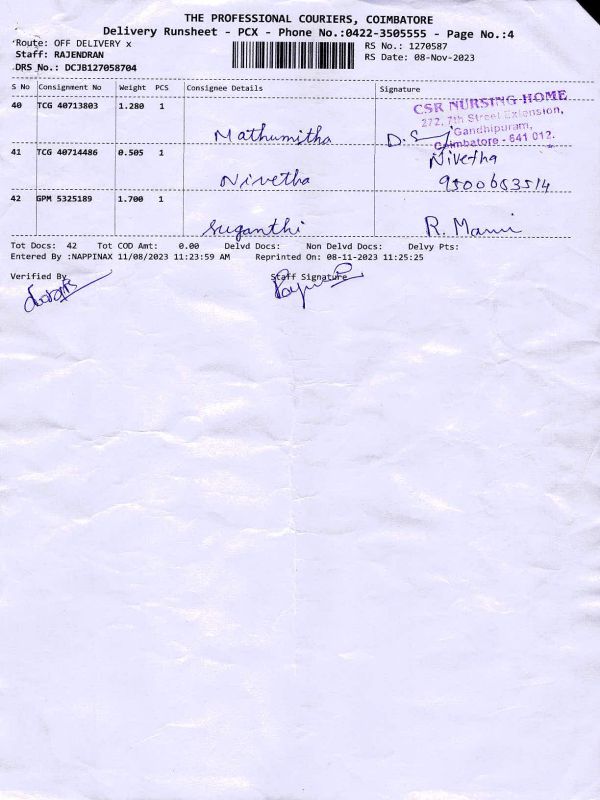 THE PROFESSIONAL COURIERS, COIMBATORE
Delivery Runsheet - PCX - Phone No.:0422-3505555 - Page No.:4
Route: OFF DELIVERY x
RS No.: 1270587
Staff: RAJENDRAN
RS Date: 08-Nov-2023
DRS No.: DCJB127058704
S No Consignment No Weight PCS Consignee Details Signature
40 TCG 40713803 1.280 1
CSR NURSING HOME
272, 7th Street Extension,
Gandhipuram,
Coimbatore - 641 012.
Mathumitha
41 TCG 40714486 0.505 1
Nivetha
Nivetha
9500653514
42 GPM 5325189 1.700 1
Suganthi R. Mani
Tot Docs: 42 Tot COD Amt: 0.00 Delvd Docs: Non Delvd Docs: Delvy Pts:
Entered By :NAPPINAX 11/08/2023 11:23:59 AM Reprinted On: 08-11-2023 11:25:25
Verified By Staff Signature